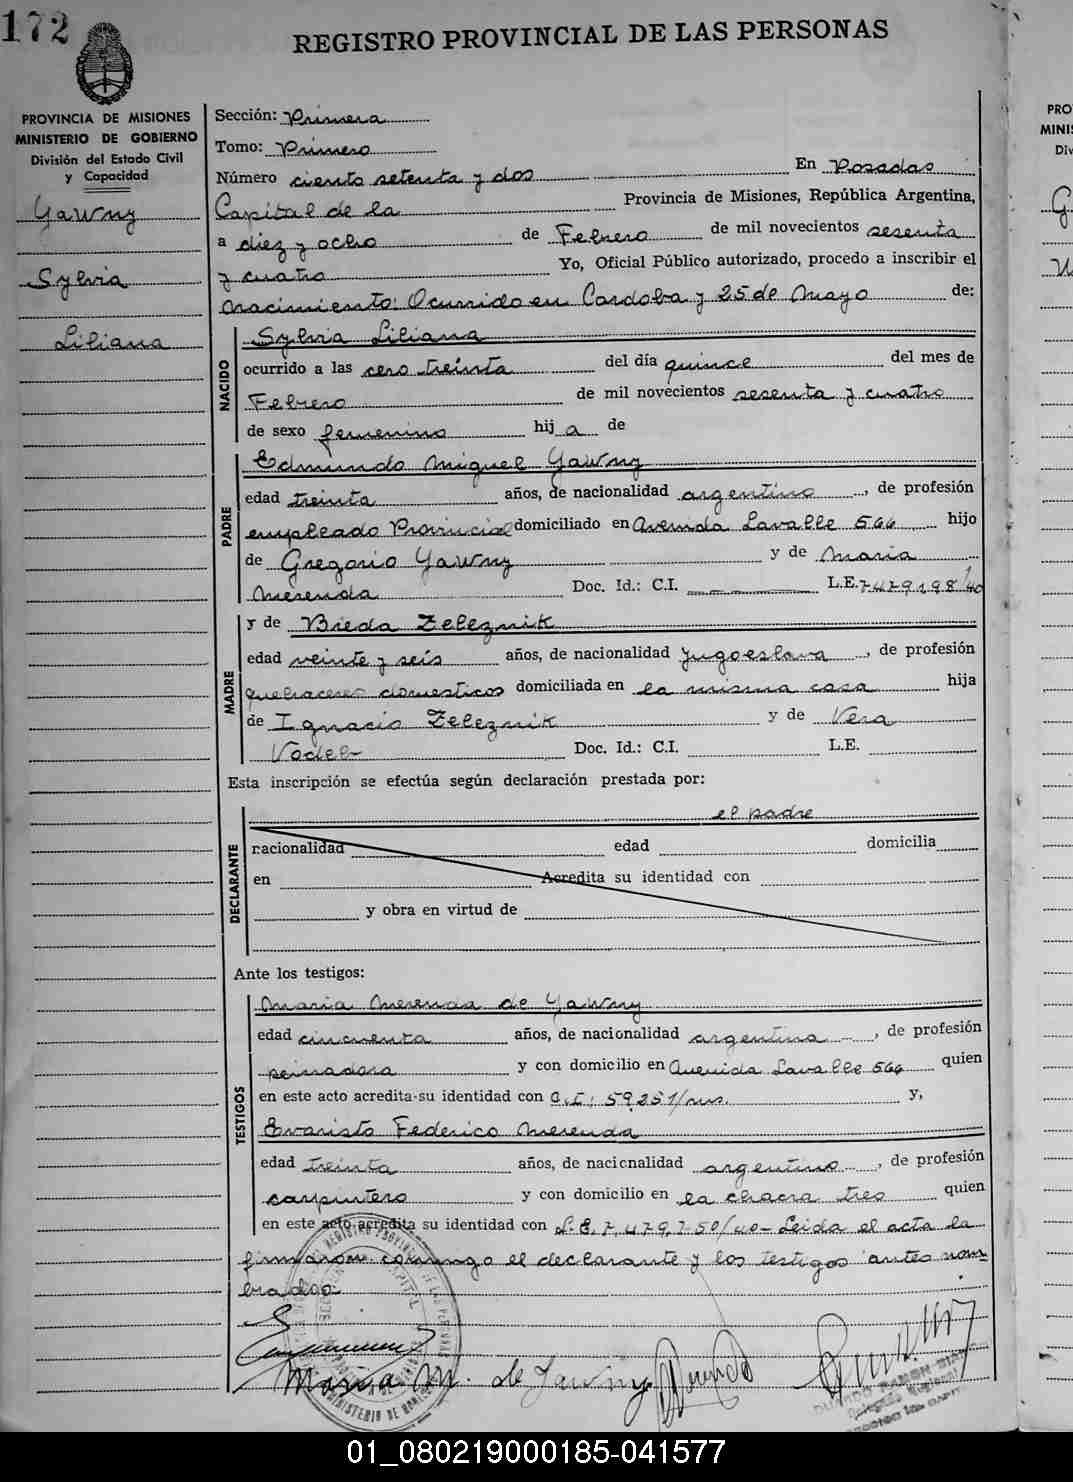 172
REGISTRO PROVINCIAL DE LAS PERSONAS
PROVINCIA DE MISIONES
MINISTERIO DE GOBIERNO
División del Estado Civil
y Capacidad
Yawny
Sylvia
Liliana
Sección: Primera
Tomo: Primero
Número ciento setenta y dos En Posadas
Capital de la Provincia de Misiones, República Argentina,
a diez y ocho de Febrero de mil novecientos sesenta
y cuatro Yo, Oficial Público autorizado, procedo a inscribir el
nacimiento: Ocurrido en Cordoba y 25 de Mayo de:
NACIDO
Sylvia Liliana
ocurrido a las cero treinta del día quince del mes de
Febrero de mil novecientos sesenta y cuatro
de sexo femenino hij a de
PADRE
Edmundo Miguel Yawny
edad treinta años, de nacionalidad argentino, de profesión
empleado Provincial domiciliado en Avenida Lavalle 566 hijo
de Gregorio Yawny y de Maria
Merenda Doc. Id.: C.I. L.E. 7479198/40
MADRE
y de Breda Zeleznik
edad veinte y seis años, de nacionalidad Yugoeslava, de profesión
quehaceres domesticos domiciliada en la misma casa hija
de Ignacio Zeleznik y de Vera
Vodeb Doc. Id.: C.I. L.E.
Esta inscripción se efectúa según declaración prestada por:
el padre
DECLARANTE
nacionalidad edad domicilia
en Acredita su identidad con
y obra en virtud de
Ante los testigos:
TESTIGOS
Maria Merenda de Yawny
edad cincuenta años, de nacionalidad argentina, de profesión
peinadora y con domicilio en Avenida Lavalle 566 quien
en este acto acredita su identidad con C.I: 59.251/ms. y,
Evaristo Federico Merenda
edad treinta años, de nacionalidad argentino, de profesión
carpintero y con domicilio en la chacra tres quien
en este acto acredita su identidad con L.E. 7.479.750/40 - Leida el acta la
firmaron conmigo el declarante y los testigos antes nom-
brados
Maria M. de Yawny
01_080219000185-041577